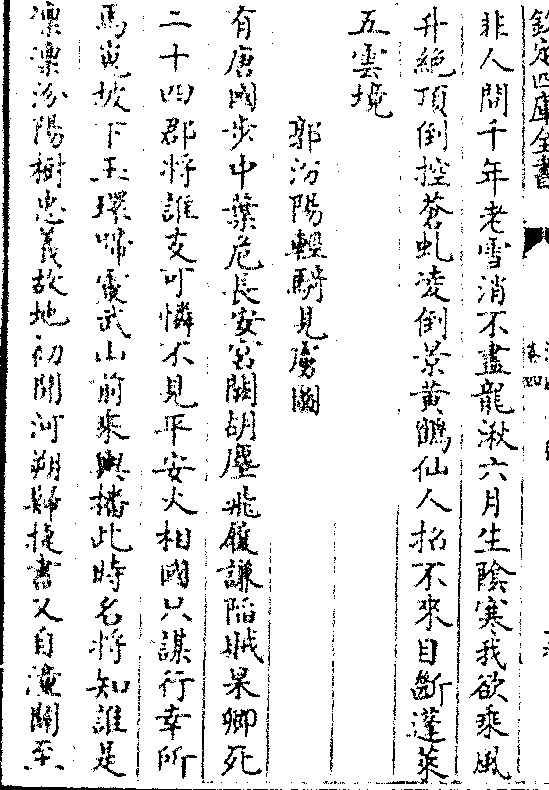 欽定四庫全書
非人間千年老雪消不盡龍湫六月生陰寒我欲乘風
升絶頂倒控蒼虬凌倒景黄鶴仙人招不來目斷蓬萊
五雲境
郭汾陽輕騎見虜圖
有唐國步中葉危長安宫闕胡塵飛履謙陷賊杲卿死
二十四郡將誰支可憐不見平安火相國只謀行幸所
馬嵬坡下玉環啼靈武山前來輿播此時名將知誰是
凛凛汾陽樹忠義故地初開河朔歸捷書又自潼關至